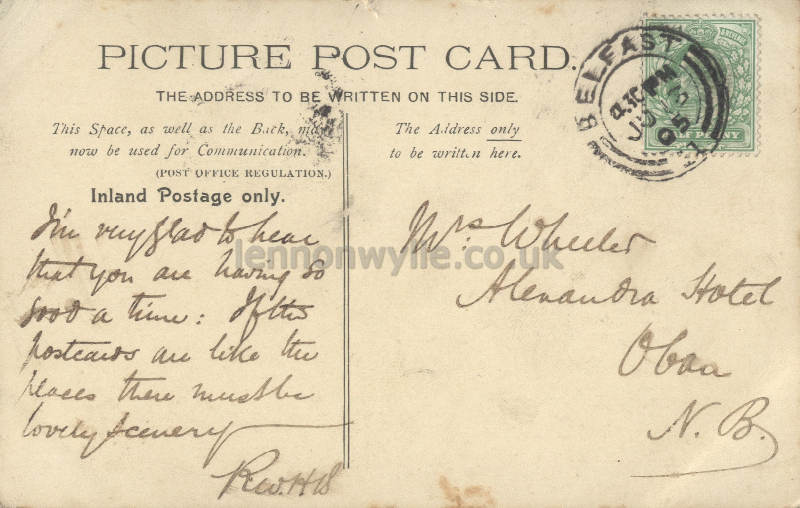 PICTURE POST CARD.
THE ADDRESS TO BE WRITTEN ON THIS SIDE.
This Space, as well as the Back, may
now be used for Communication.
(POST OFFICE REGULATION.)
Inland Postage only.
I'm very glad to hear
that you are having so
good a time: If the
postcards are like the
places there must be
lovely scenery
The Address only
to be written here.
Mrs. Wheeler
Alexandra Hotel
Oban
N.B.
BELFAST
9.30 PM
05
HALF PENNY
lennonwylie.co.uk